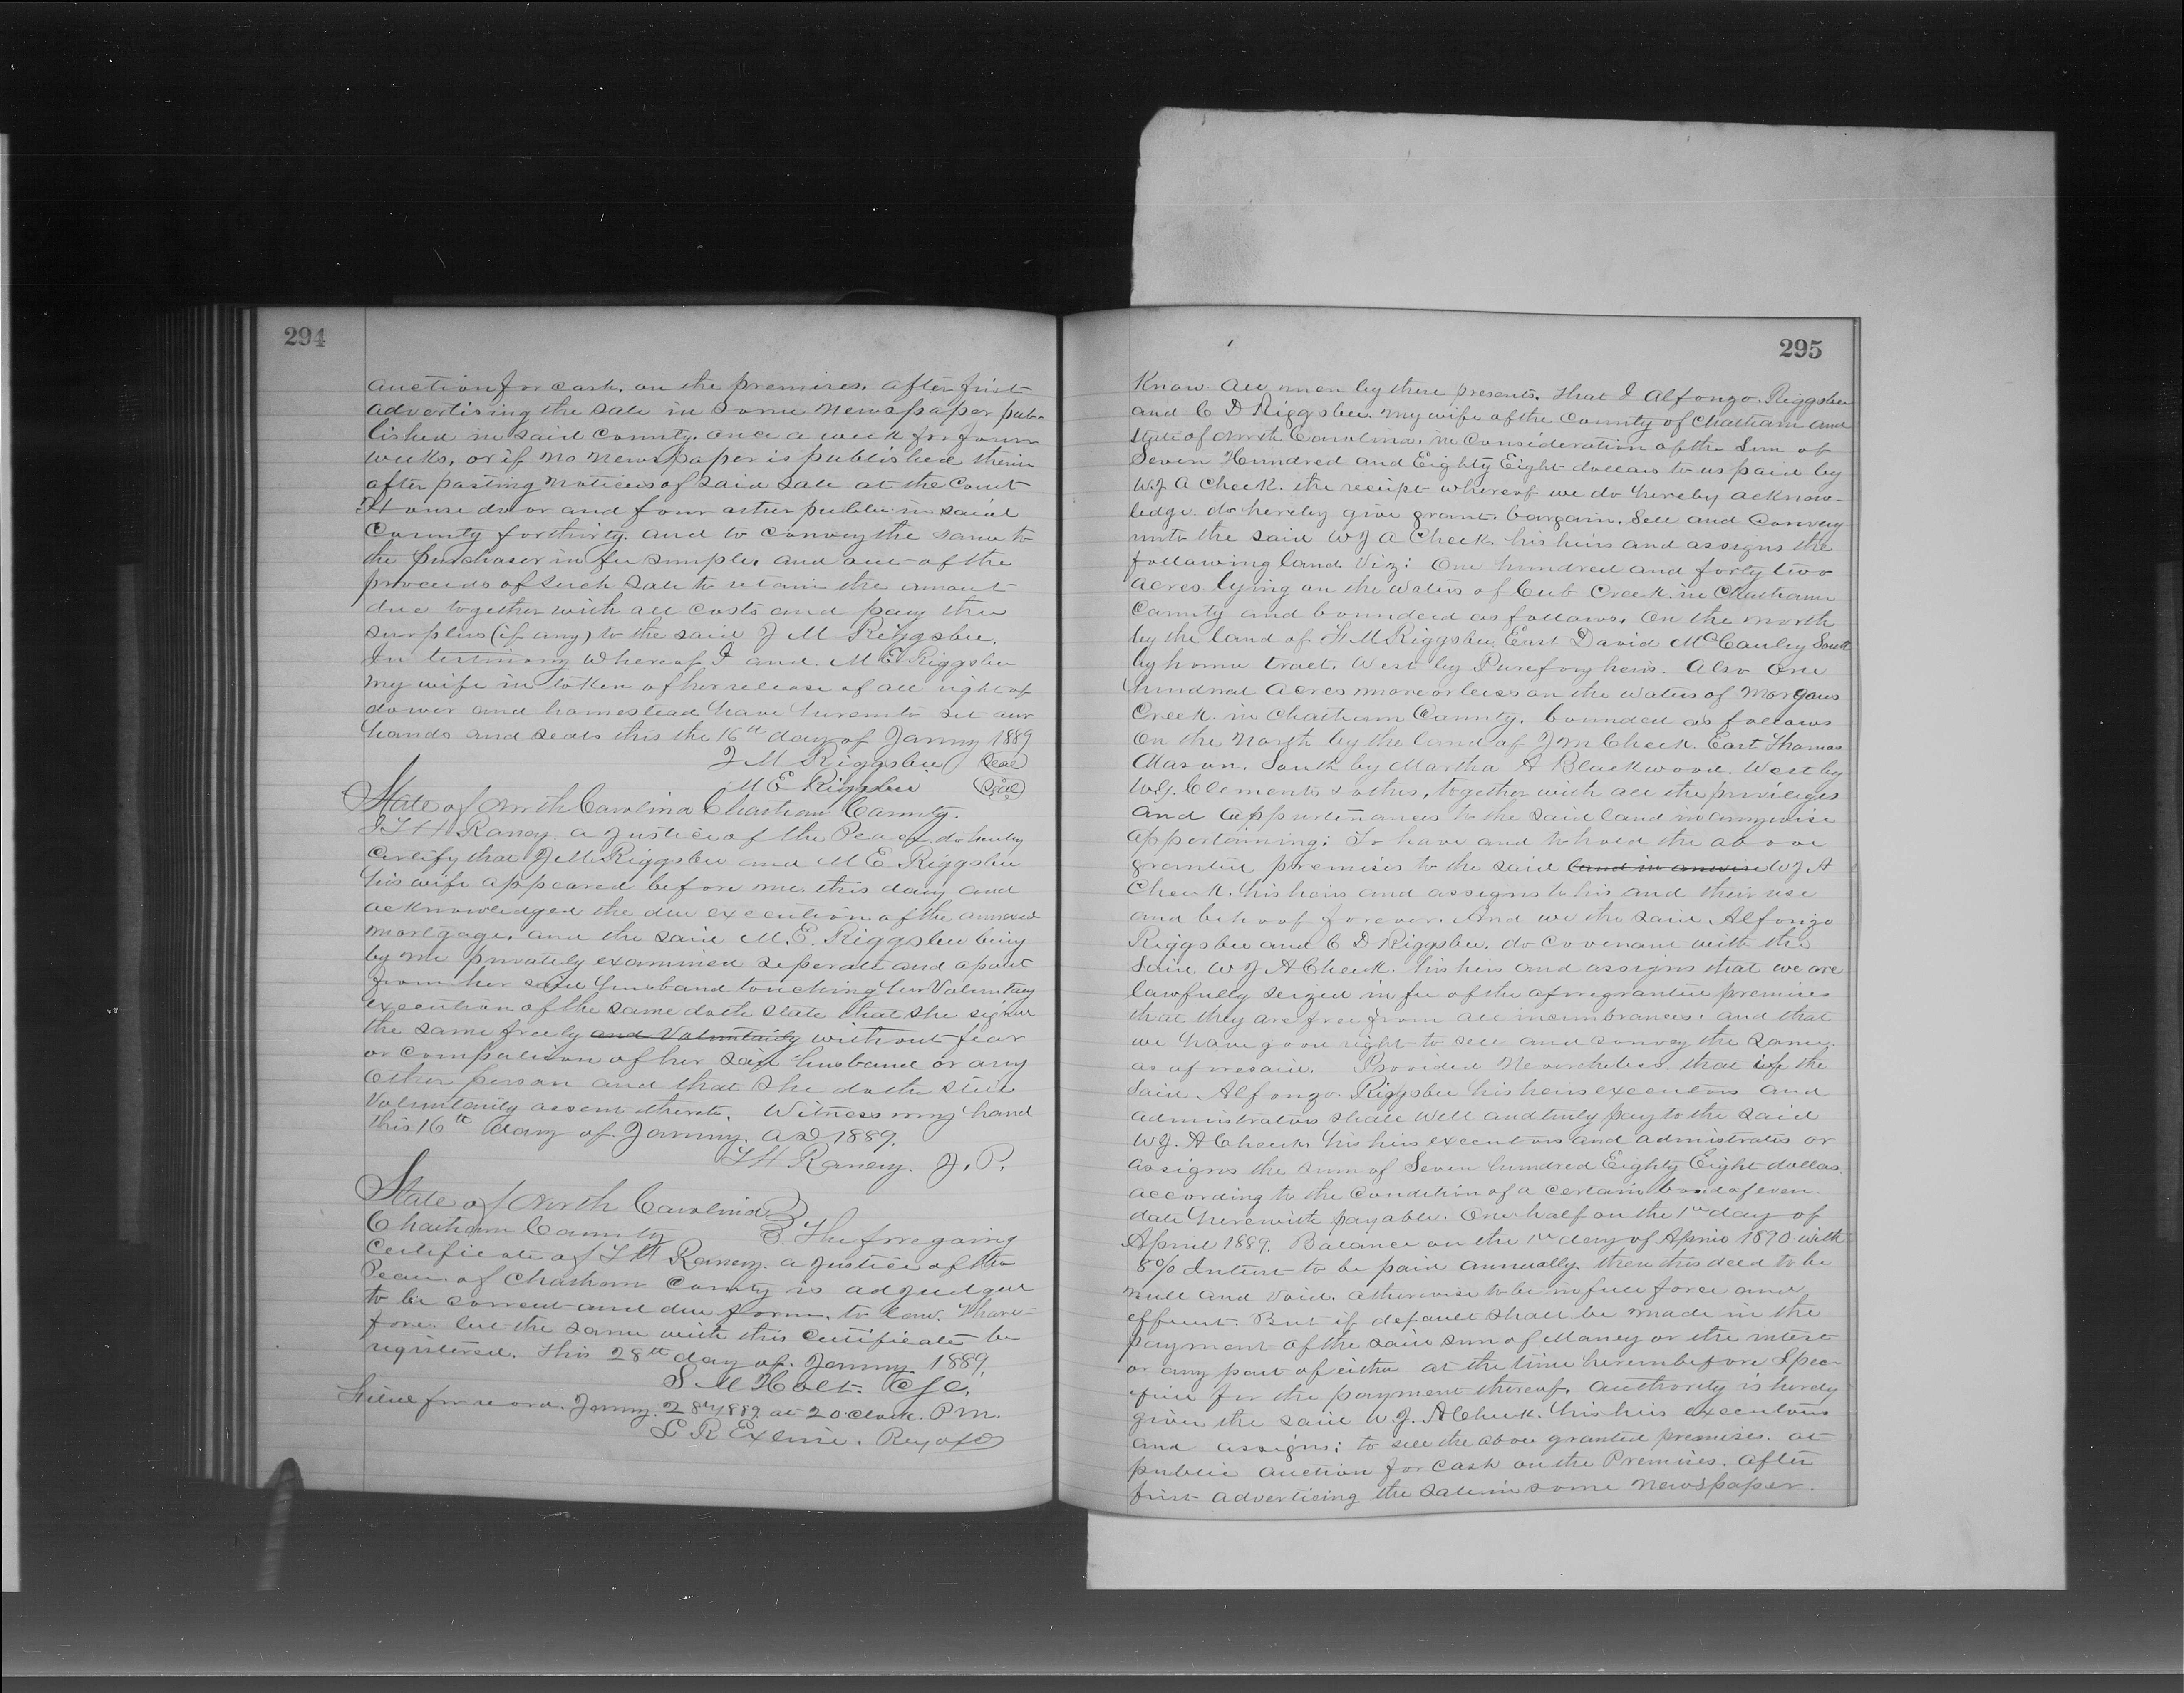 294
auction for cash, on the premises, after first
advertising the sale in some newspaper pub-
lished in said County, once a week for four
weeks, or if no newspaper is published therein
after posting notices of said sale at the Court
House door and four other public in said
County for thirty. and to convey the same to
the purchaser in fee simple, and out of the
proceeds of such sale to retain the amount
due together with all costs and pay the
surplus (if any) to the said J M Riggsbee.
In testimony whereof I and M E Riggsbee
my wife in token of her release of all right of
dower and homestead have hereunto set our
hands and seals this the 16th day of Janury 1889
J M Riggsbee Seal
M E Riggsbee Seal
State of North Carolina Chatham County.
I T H Raney a Justice of the Peace do hereby
certify that J M Riggsbee and M E Riggsbee
his wife appeared before me this day and
acknowledged the due execution of the annexed
mortgage, and the said M. E. Riggsbee being
by me privately examined seperate and apart
from her said husband touching her Voluntary
execution of the same doth state that she signed
the same freely and Voluntarily without fear
or compulsion of her said husband or any
other person and that she doth still
Voluntarily assent thereto. Witness my hand
this 16th day of Janury. AD 1889.
T H Raney. J. P.
State of North Carolina
Chatham County The foregoing
Certificate of T H Raney a Justice of the
Peace of Chatham County is adjudged
to be correct and due form. to law. There-
fore let the same with this certificate be
registered. This 28th day of Janury 1889.
S M Holt. CSC.
Filed for record Janury. 28th 1889 at 2 o clock. P m.
L R Exline. Reg of D
295
Know all men by these presents, that I Alfonzo Riggsbee
and C D Riggsbee my wife of the County of Chatham and
State of North Carolina, in Consideration of the Sum of
Seven Hundred and Eighty Eight dollars to us paid by
W J A Cheek. the receipt whereof we do hereby acknow-
ledge do hereby give grant. bargain. Sell and Convey
unto the said W J A Cheek. his heirs and assigns the
following land Viz: One hundred and forty two
acres lying on the waters of Cub Creek in Chatham
County and bounded as follows, On the north
by the land of H M Riggsbee, East David McCauley South
by home tract. West by Purefoy heirs. Also One
hundred Acres more or less on the waters of Morgans
Creek in Chatham County. bounded as follows
On the North by the land of J M Cheek East Thomas
Mason. South by Martha A Blackwood. West by
W. G. Clements & others, together with all the privileges
and appurtenances to the said land in anywise
appertaining: To have and to hold the above
granted premises to the said land in anwise W J A
Cheek. his heirs and assigns to his and their use
and behoof forever. And we the said Alfonzo
Riggsbee and C D Riggsbee. do Covenant with the
said W J A Cheek. his heirs and assigns that we are
lawfully seized in fee of the aforegranted premises
that they are free from all incumbrances. and that
we have good right to sell and convey the same.
as aforesaid. Provided Nevertheless that if the
said Alfonzo Riggsbee his heirs executors and
administrators shall well and truly pay to the said
W J. A Cheek his heirs executors and administrators or
assigns the sum of Seven hundred Eighty Eight dollars.
according to the condition of a certain bond of even
date herewith payable. One half on the 1st day of
April 1889. Balance on the 1st day of April 1890 with
8% Interest to be paid annually then this deed to be
null and void. otherwise to be in full force and
effect. But if default shall be made in the
payment of the said sum of Money or the interest
or any part of either at the time hereinbefore Spec-
ified for the payment thereof, authority is hereby
given the said W. J. A Cheek. his heirs executors
and assigns: to sell the above granted premises. at
public auction for cash on the Premises. After
first advertising the sale in some newspaper.